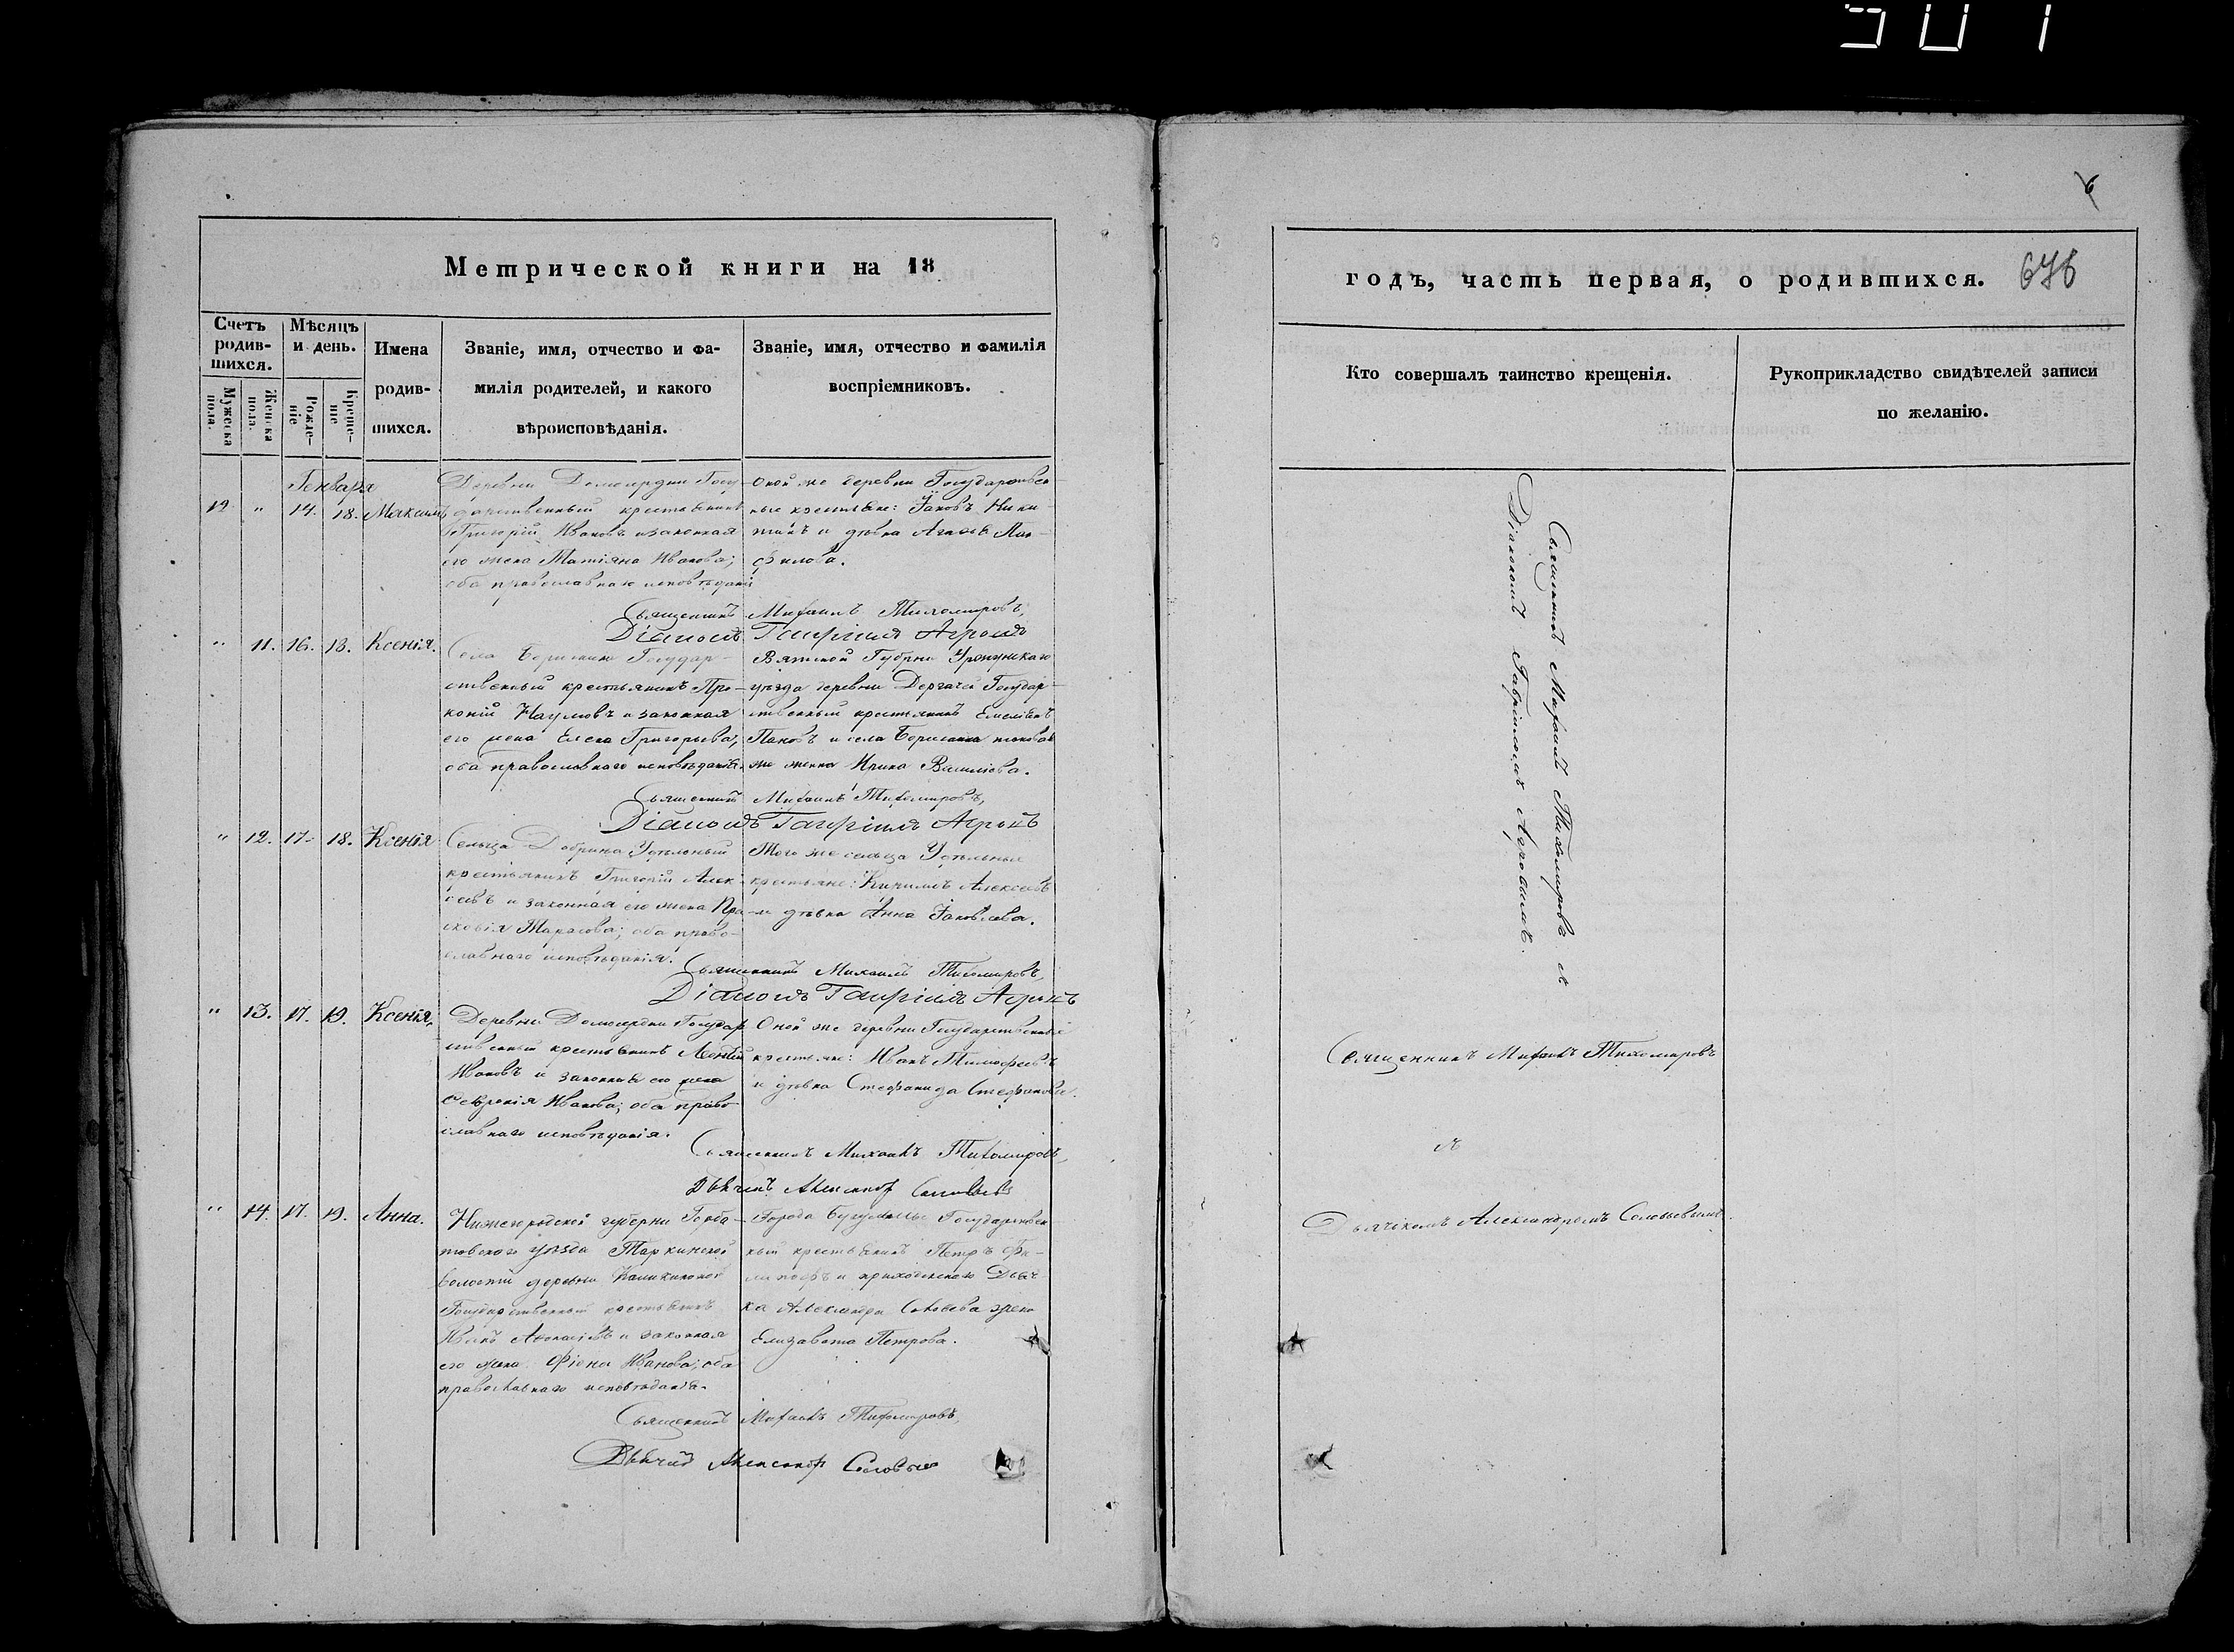 501
6
Метрической книги на 18
годъ, часть первая, о родившихся.
676
Счетъ родив-шихся.
Мужеска пола.
Женска пола.
Мѣсяцъ и день.
Рожде-ніе
Креще-ніе
Имена
родив-
шихся.
Званіе, имя, отчество и фа-
милія родителей, и какого
вѣроисповѣданія.
Званіе, имя, отчество и фамилія
воспріемниковъ.
Кто совершалъ таинство крещенія.
Рукоприкладство свидѣтелей записи
по желанію.
Генваря
12 " 14. 18. Максимъ
Деревни Госу-
дарственный крестьянинъ
Григорій Ивановъ и законная
его жена Татіяна Иванова;
оба православнаго исповѣданія
Оной же деревни Государствен-
ные крестьяне: Іаковъ Ники-
тинъ и дѣвка Пан-
филова.
Священникъ Михаилъ Тихомировъ,
Діаконъ Гавріилъ Агровъ
" 11. 16. 18. Ксенія.
Села Государ-
ственный крестьянинъ Про-
копій Наумовъ и законная
его жена Елена Григорьева,
оба православнаго исповѣданія.
Вятской Губрніи
уѣзда деревни Государ-
ственный крестьянинъ Емеліанъ
Пановъ и села таковая
же женка Ирина Василіева.
Священникъ Михаилъ Тихомировъ,
Діаконъ Гавріилъ Агровъ
" 12. 17. 18. Ксенія
Сельца Добрина Удѣльный
крестьянинъ Григорій Алек-
сѣевъ и законная его жена Пра-
сковія Тарасова; оба право-
славнаго исповѣданія.
Того же сельца Удѣльные
крестьяне: Кирилъ Алексѣевъ
и дѣвка Анна Іаковлева.
Священникъ Михаилъ Тихомировъ,
Діаконъ Гавріилъ Агровъ
" 13. 17. 19. Ксенія,
Деревни Государ
ственный крестьянинъ Леонтій
Ивановъ и законная его жена
Февронія Иванова; оба право-
славнаго исповѣданія.
Оной же деревни Государственные
крестьяне: Иванъ Тимофеевъ
и дѣвка Стефанида Стефанова.
Священникъ Михаилъ Тихомировъ,
Дьячекъ Александръ Соловьевъ
" 14. 17. 19. Анна.
Нижегородской губерніи Горба-
товскаго уѣзда
волости деревни
Государственный крестьянинъ
Иванъ Афонасіевъ и законная
его жена Фіона Иванова; оба
православнаго исповѣданія.
Города Бугульмы Государствен-
ный крестьянинъ Петръ Фи-
липовъ и приходскаго Дьяч-
ка Александра Соловьева жена
Елизавета Петрова.
Священникъ Михаилъ Тихомировъ,
Дьячекъ Александръ Соловьевъ
Священникъ Михаилъ Тихомировъ съ
Діакономъ Гавріиломъ Агровымъ.
Священникъ Михаилъ Тихомировъ
съ
Дьячкомъ Александромъ Соловьевымъ.